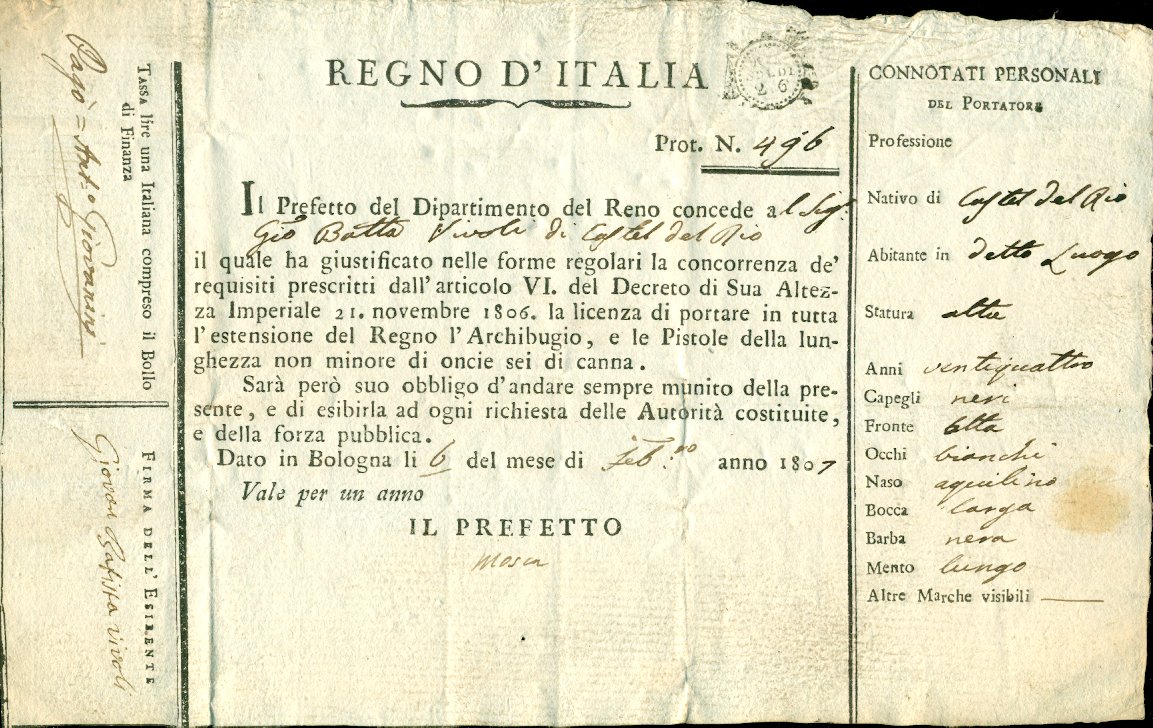 REGNO D'ITALIA
Prot. N. 496
Il Prefetto del Dipartimento del Reno concede al Sigr.
Gio Batta Vivoli di Castel del Rio
il quale ha giustificato nelle forme regolari la concorrenza de'
requisiti prescritti dall'articolo VI. del Decreto di Sua Altez-
za Imperiale 21. novembre 1806. la licenza di portare in tutta
l'estensione del Regno l'Archibugio, e le Pistole della lun-
ghezza non minore di oncie sei di canna.
Sarà però suo obbligo d'andare sempre munito della pre-
sente, e di esibirla ad ogni richiesta delle Autorità costituite,
e della forza pubblica.
Dato in Bologna li 6 del mese di Feb.ro anno 1807
Vale per un anno
IL PREFETTO
Mosca
CONNOTATI PERSONALI
DEL PORTATORE
Professione
Nativo di Castel del Rio
Abitante in detto Luogo
Statura alta
Anni ventiquattro
Capegli neri
Fronte alta
Occhi bianchi
Naso aquilino
Bocca larga
Barba nera
Mento lungo
Altre Marche visibili —
TASSA lire una Italiana compreso il Bollo
di Finanza
Pagò = Ant.o Giovanini
FIRMA DELL'ESIBENTE
Giovan Batista Vivoli